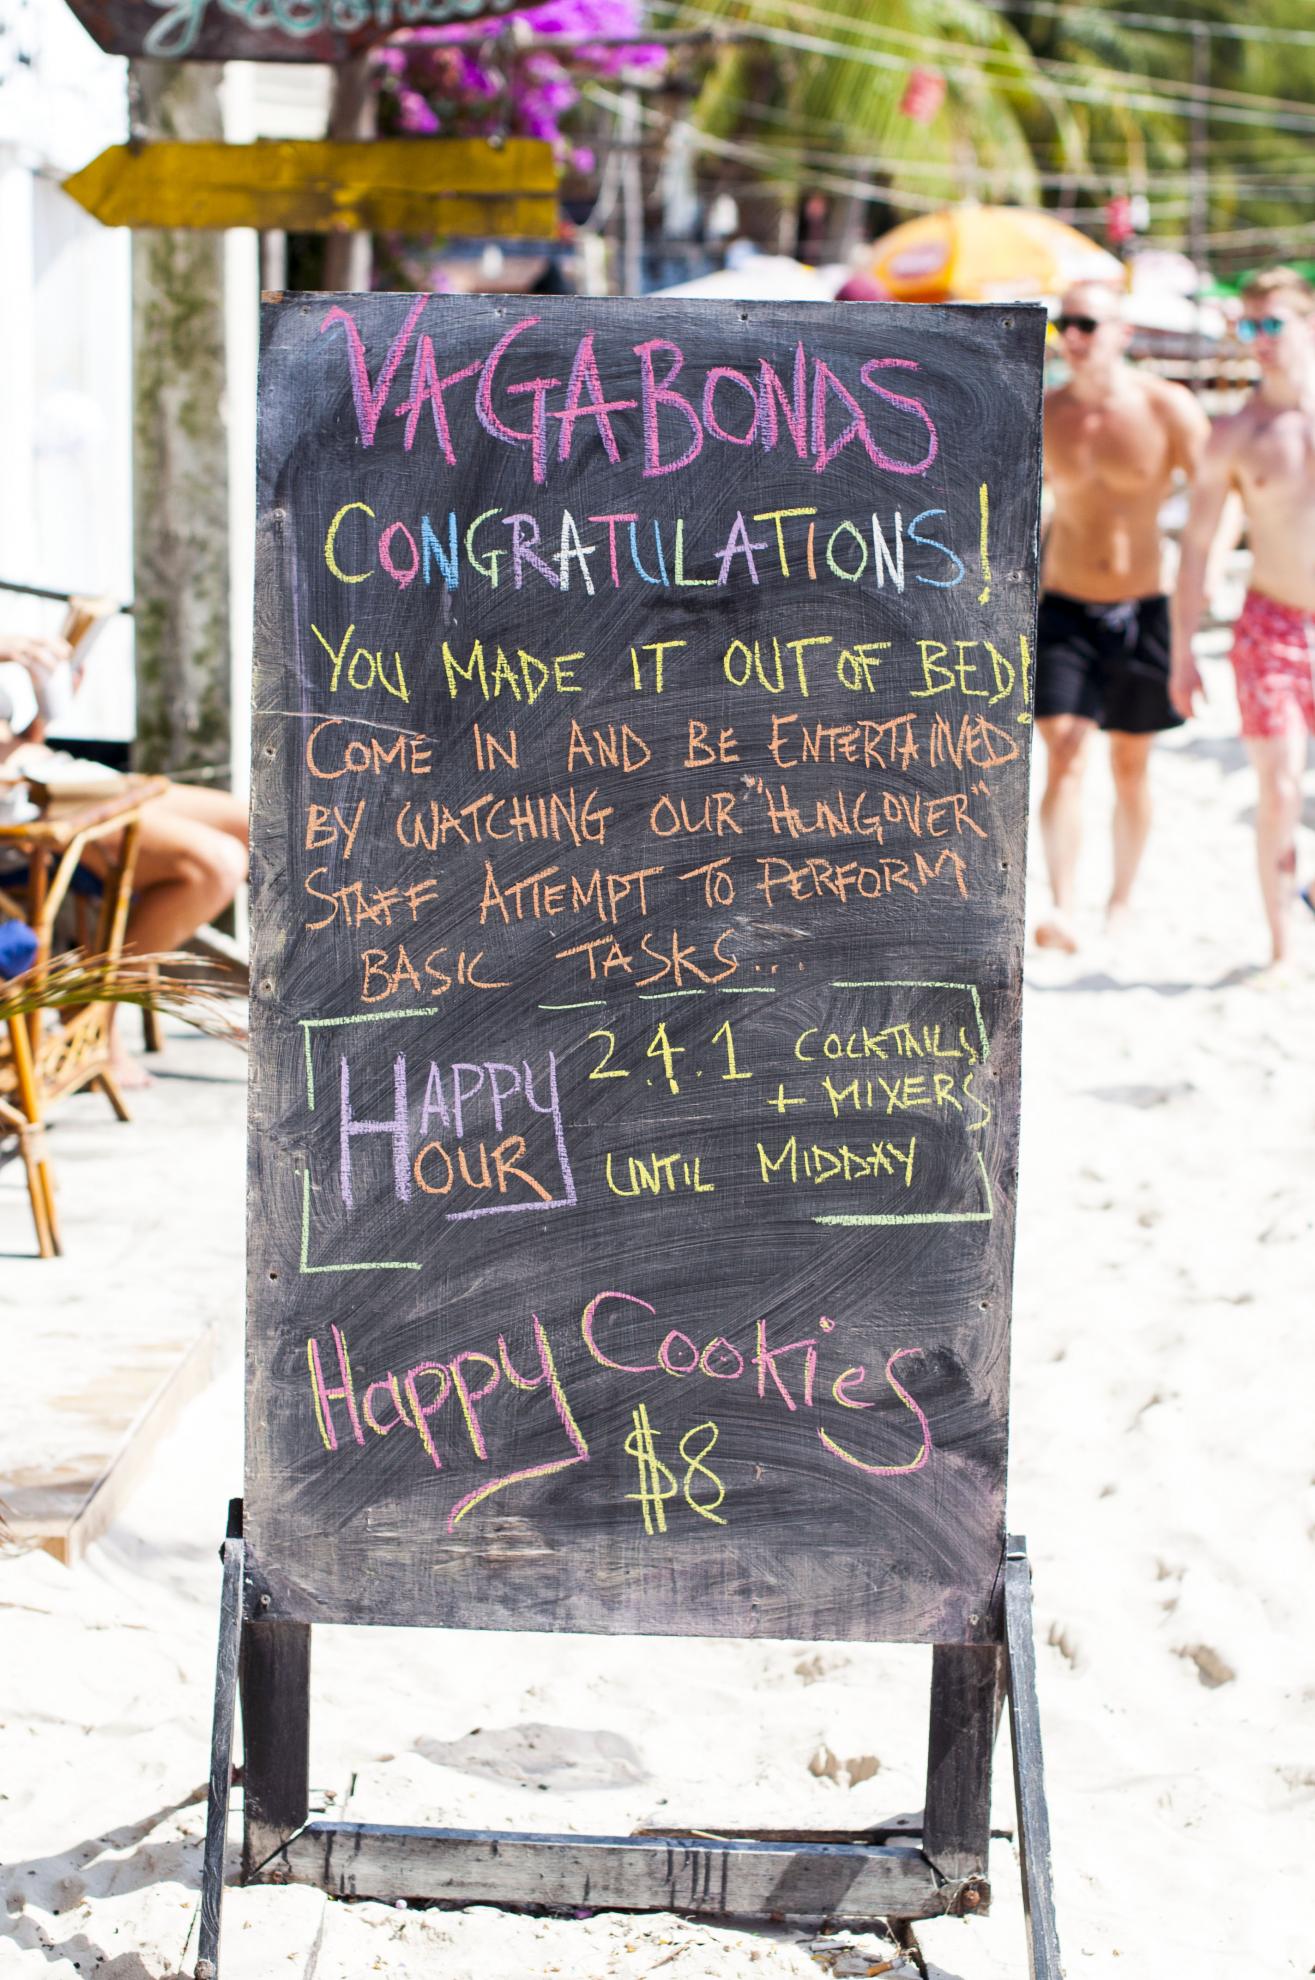 VAGABONDS
CONGRATULATIONS!
YOU MADE IT OUT OF BED!
COME IN AND BE ENTERTAINED
BY WATCHING OUR "HUNGOVER"
STAFF ATTEMPT TO PERFORM
BASIC TASKS...
HAPPY
HOUR
2.4.1 COCKTAILS
+ MIXERS
UNTIL MIDDAY
Happy Cookies
$8